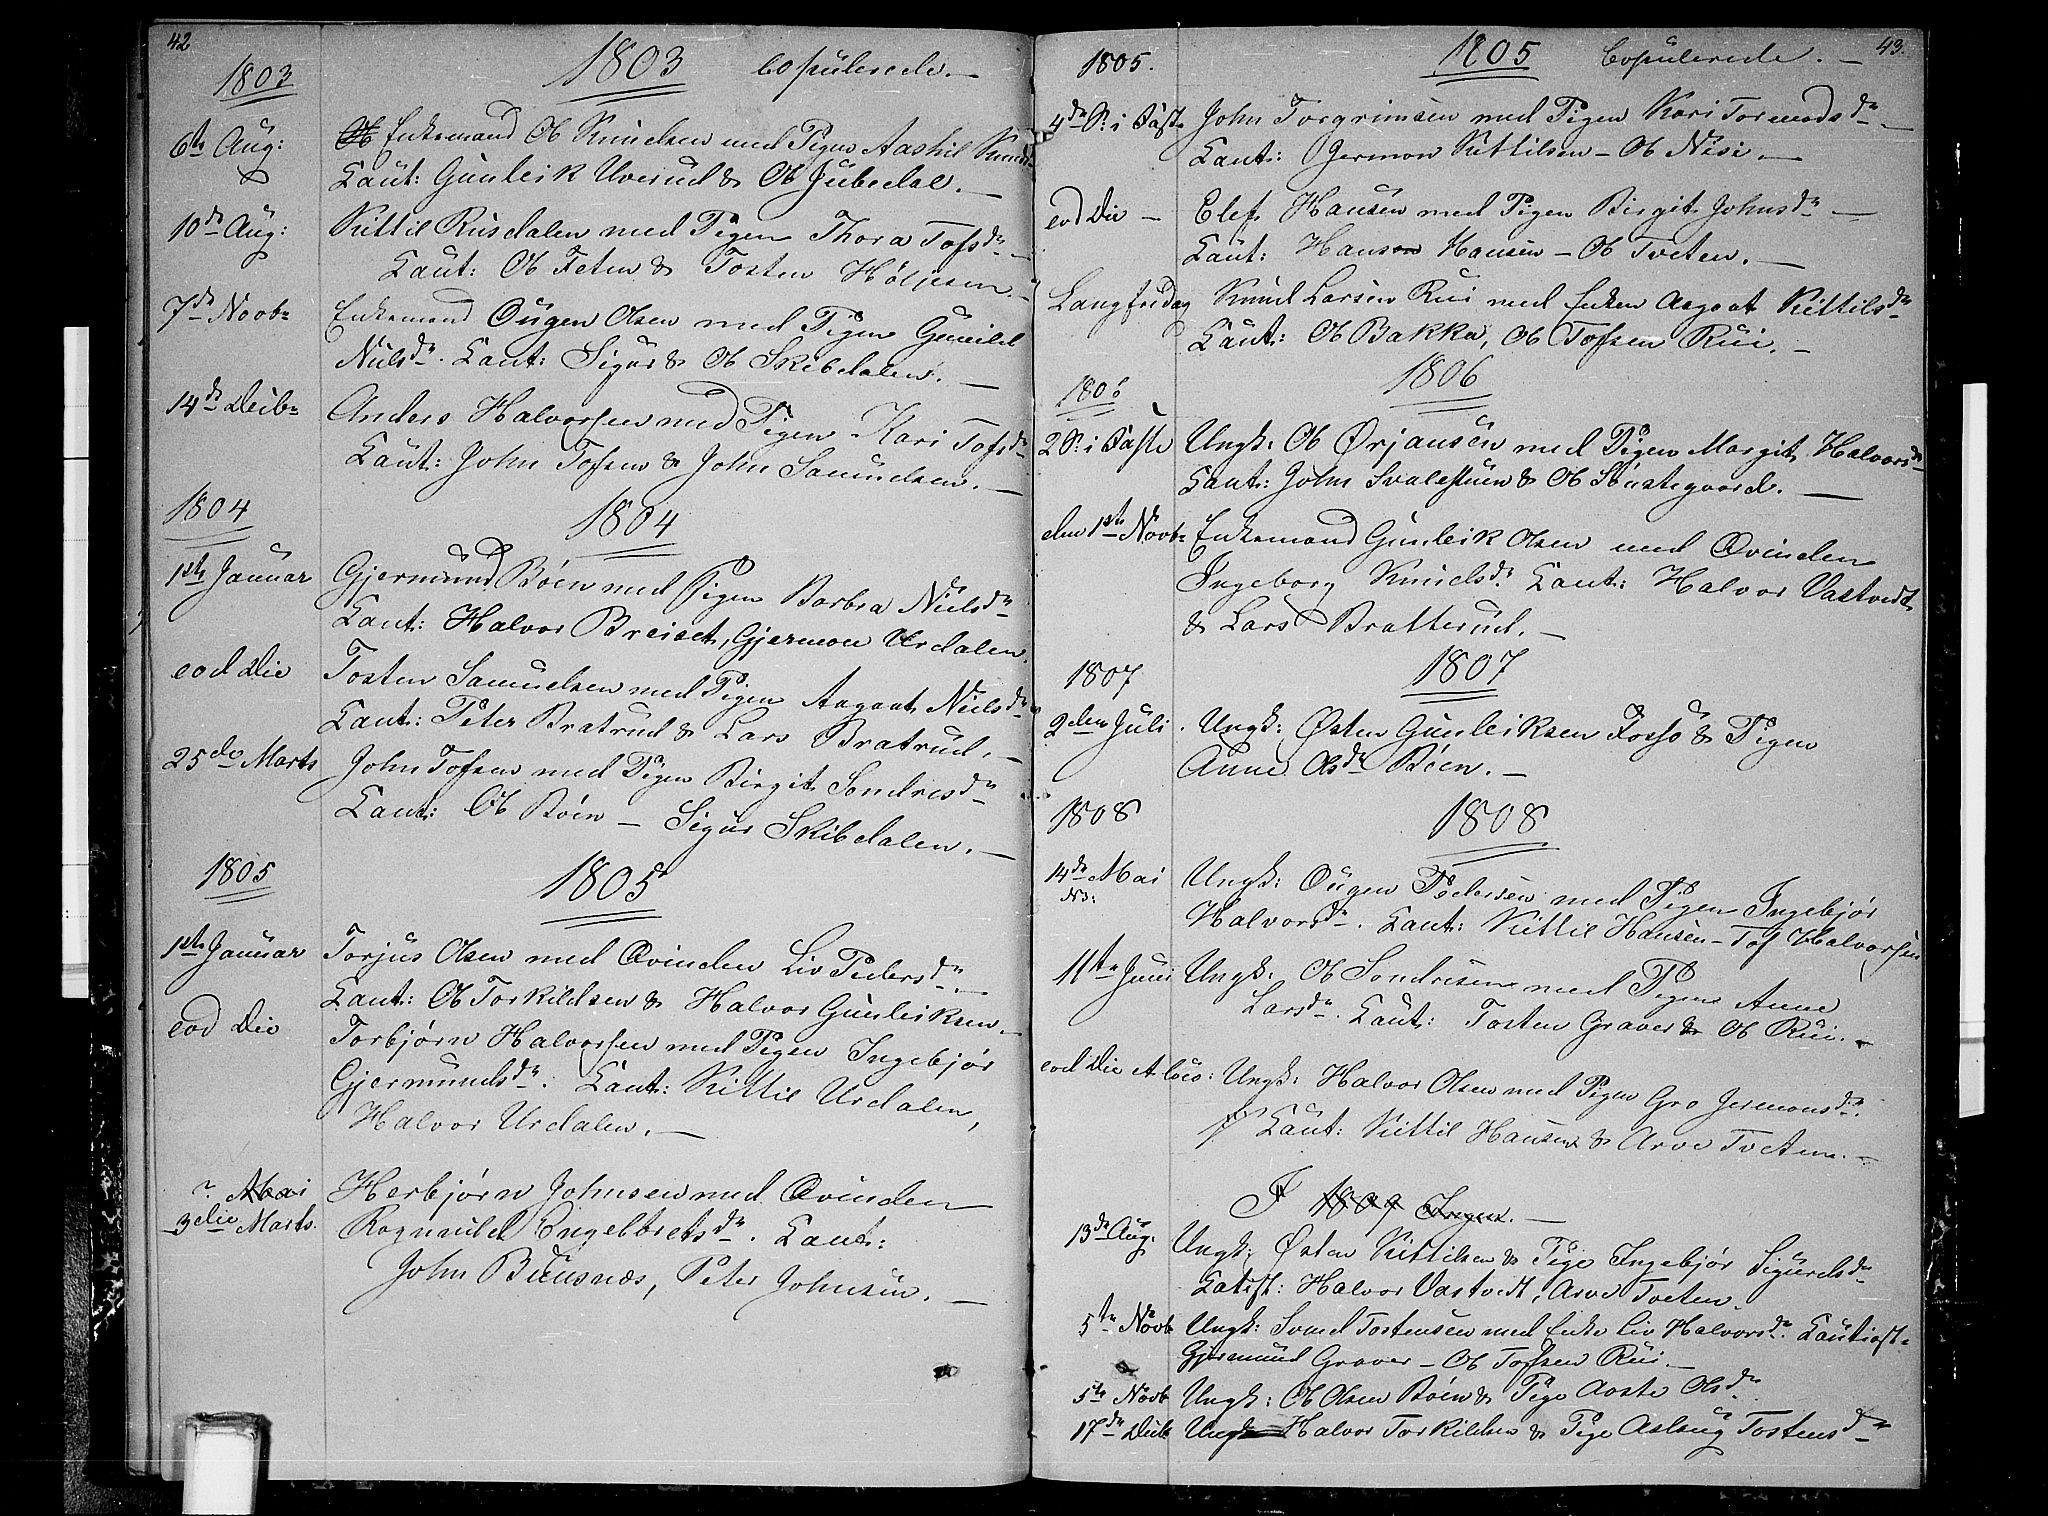 42
1803 1803 Copulerede. —
6te Aug: Enkemand Ol Knudsen med Pigen Aashil Knudsd
Caut: Gunleik Uverud & Ol Jubedal. —
10de Aug: Kittil Rusdalen med Pigen Thora Tofsdr —
Caut: Ol Feten & Tosten Høljesen. —
7de Novbr Enkemand Ougen Olsen med Pigen Gunild
Nielsdr. Caut: Sigur & Ol Skibdalen. —
14de Decbr Anders Halvorsen med Pigen Kari Tofsdr
Caut: John Tofsen & John Samuelsen. —
1804 1804
1ste Januar Gjermund Bøen med Pigen Barbra Nielsdr
Caut: Halvor Breiset, Gjermon Urdalen.
eod Die Tosten Samuelsen med Pigen Aagaat Nielsdr
Caut: Peter Bratrud & Lars Bratrud. —
25de Marts John Tofsen med Pigen Birgit Sondresdr
Caut: Ol Bøen — Sigur Skibdalen. —
1805 1805
1ste Januar Torjus Olsen med Qvinden Liv Pedersdr. —
Caut: Ol Torkildsen & Halvor Gunleiksen. —
eod Die Torbjørn Halvorsen med Pigen Ingebjør
Gjermundsdr. Caut: Kittil Urdalen,
Halvor Urdalen. —
? Mai Herbjørn Johnsen med Qvinden
3die Marts. Rognuild Engelbretsdr. Caut:
John Buusnæs, Peter Johnsen. —
43.
1805. 1805 Copulerede. —
4de S. i Fast. John Torgrimsen med Pigen Kari Tormodsdr —
Caut: Jermon Kittilsen — Ol Nisi —
eod Die — Elef Hansen med Pigen Birgit Johnsdr —
Caut: Hanson Hansen — Ol Tveten. —
Langfredag Knud Larsen Rui med Enken Aagaat Kittilsdr
Caut: Ol Bakka, Ol Tofsen Rui. —
1806 1806
2 S. i Faste Ungk: Ol Ørjansen med Pigen Margit Halvorsdr
Caut: John Svalestuen & Ol Søustegaard. —
den 1ste Novbr Enkemand Gunleik Olsen med Qvinden
Ingeborg Knudsdr. Caut: Halvor Vastvedt
& Lars Bratterud. —
1807 1807
2den Juli. Ungk: Østen Gunleiksen Fosso & Pigen
Anne Olsdr Bøen. —
1808 1808
14de Mai Ungk: Ougen Pedersen med Pigen Ingebjør
N3: Halvorsdr. Caut: Kittil Hansen — Tof Halvorsen
11te Juni Ungk: Ol Sondresen med Pigen Anne
Larsdr. Caut: Tosten Graver & Ol Rui. —
eod Die & loco: Ungk: Halvor Olsen med Pigen Gro Jermonsdr.
Caut: Kittil Hansen & Arve Tveten. —
1809 Ingen. —
13de Aug. Ungk: Østen Kittilsen & Pige Ingebjør Sigurdsdr
Catist: Halvor Vastvedt, Arve Tveten.
5te Novb Ungk: Svend Tostensen med Enke Liv Halvorsdr. Cautiost
Gjermund Graver — Ol Tofsen Rui. —
5te Novb Ungk: Ol Olsen Bøen & Pige Aaste Olsdr
17de Decb Ungk Halvor Torkildsen & Pige Aslaug Tostensdr